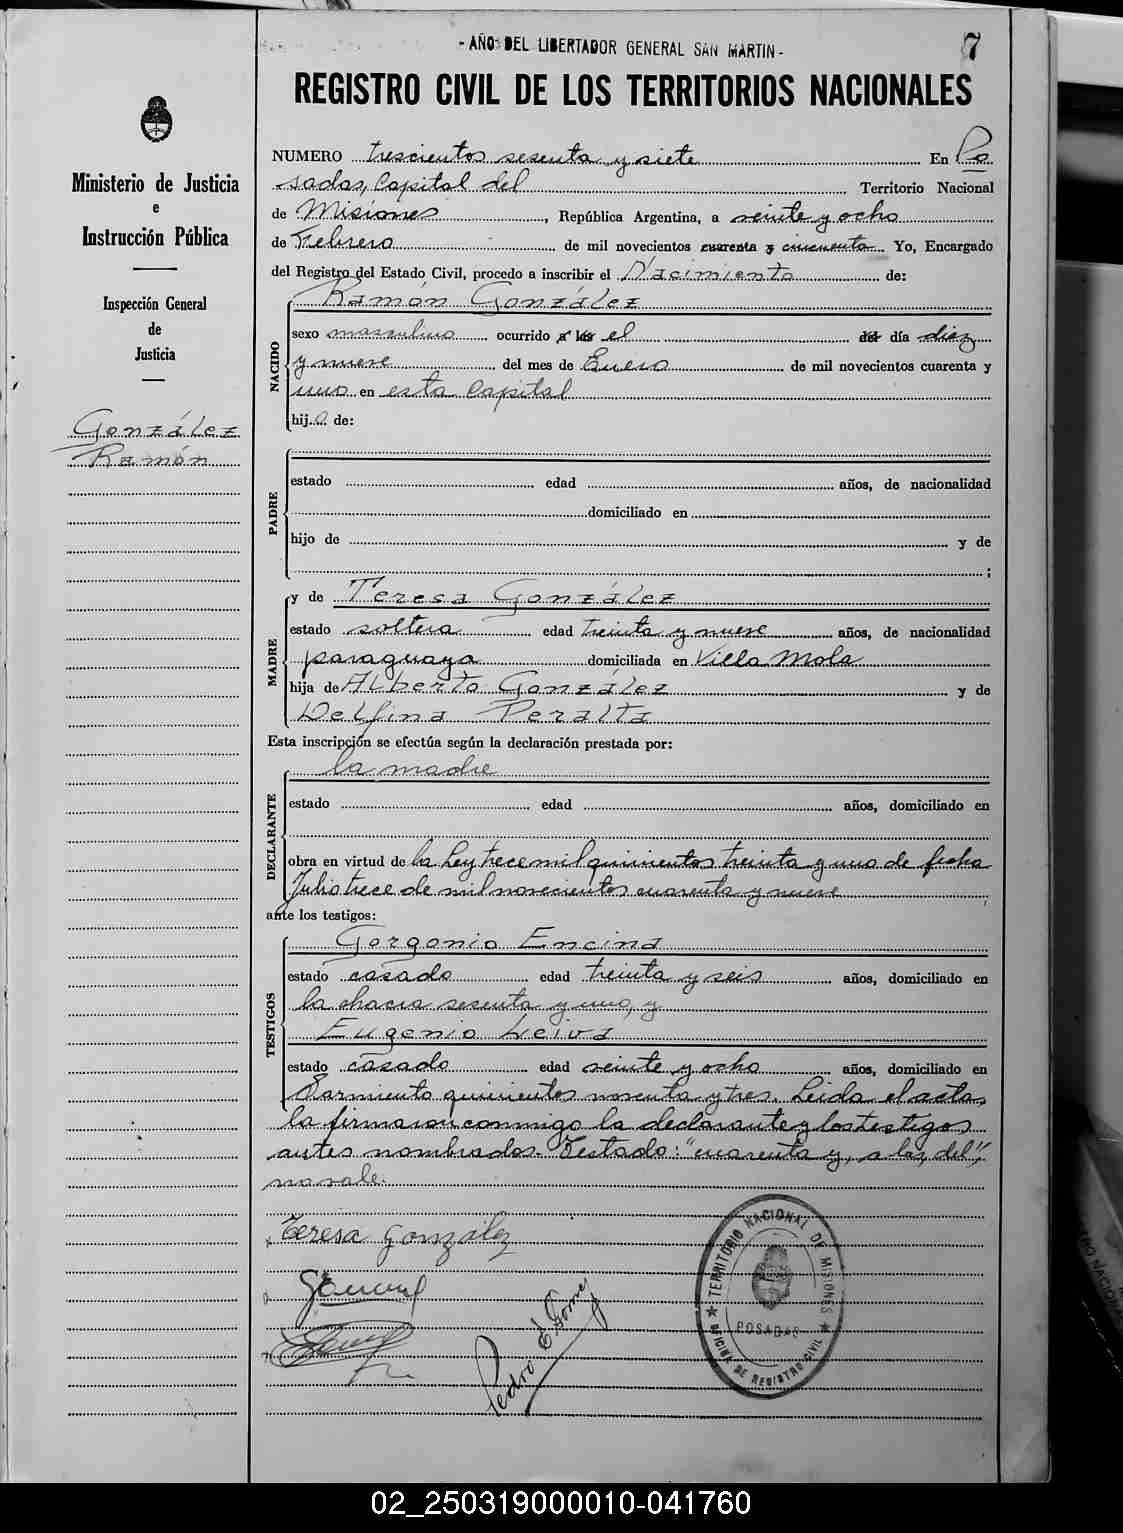 - AÑO DEL LIBERTADOR GENERAL SAN MARTIN -
7
REGISTRO CIVIL DE LOS TERRITORIOS NACIONALES
Ministerio de Justicia
e
Instrucción Pública
Inspección General
de
Justicia
González
Ramón
NUMERO trescientos sesenta y siete En Po
sadas, Capital del Territorio Nacional
de Misiones, República Argentina, a veinte y ocho
de Febrero de mil novecientos cuarenta y cincuenta. Yo, Encargado
del Registro del Estado Civil, procedo a inscribir el Nacimiento de:
NACIDO
Ramón González
sexo masculino ocurrido a las el del día diez
y nueve del mes de Enero de mil novecientos cuarenta y
uno en esta Capital
hijo de:
PADRE
estado edad años, de nacionalidad
domiciliado en
hijo de y de
;
MADRE
y de Teresa González
estado soltera edad treinta y nueve años, de nacionalidad
paraguaya domiciliada en Villa Mola
hija de Alberto González y de
Delfina Peralta
Esta inscripción se efectúa según la declaración prestada por:
DECLARANTE
la madre
estado edad años, domiciliado en
obra en virtud de la Ley trece mil quinientos treinta y uno de fecha
Julio trece de mil novecientos cuarenta y nueve;
ante los testigos:
TESTIGOS
Gorgonio Encina
estado casado edad treinta y seis años, domiciliado en
la chacra sesenta y uno, y
Eugenio Leiva
estado casado edad veinte y ocho años, domiciliado en
Sarmiento quinientos noventa y tres. Leida el acta,
la firmaron conmigo la declarante y los testigos
antes nombrados. Testado: "cuarenta y, a las, del",
no vale.
Teresa González
Pedro E. Gomez
TERRITORIO NACIONAL DE MISIONES
POSADAS
OFICINA DE REGISTRO CIVIL
02_250319000010-041760